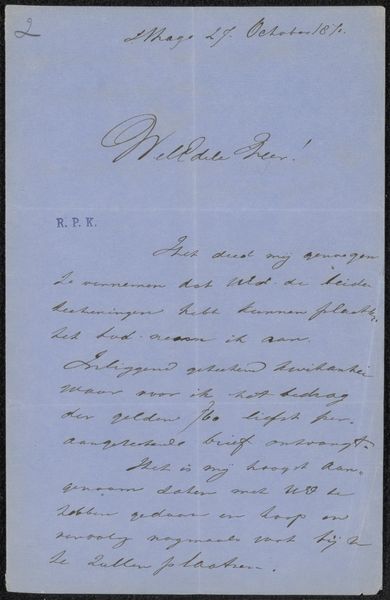 2
s'Hage 27 October 18
WelEdele Heer!
R. P. K.
Het deed mij genoegen
te vernemen dat UEd. de beide
teekeningen hebt kunnen plaatsen
het bod neem ik aan.
Inliggend geteekend kwitantie
waar voor ik het bedrag
der gelden liefst per
aangeteekende brief ontvangt.
Het is mij hoogst aan-
genaam zaken met UEd te
hebben gedaan en hoop
vervolg nogmaals bij U
te zullen plaatsen.